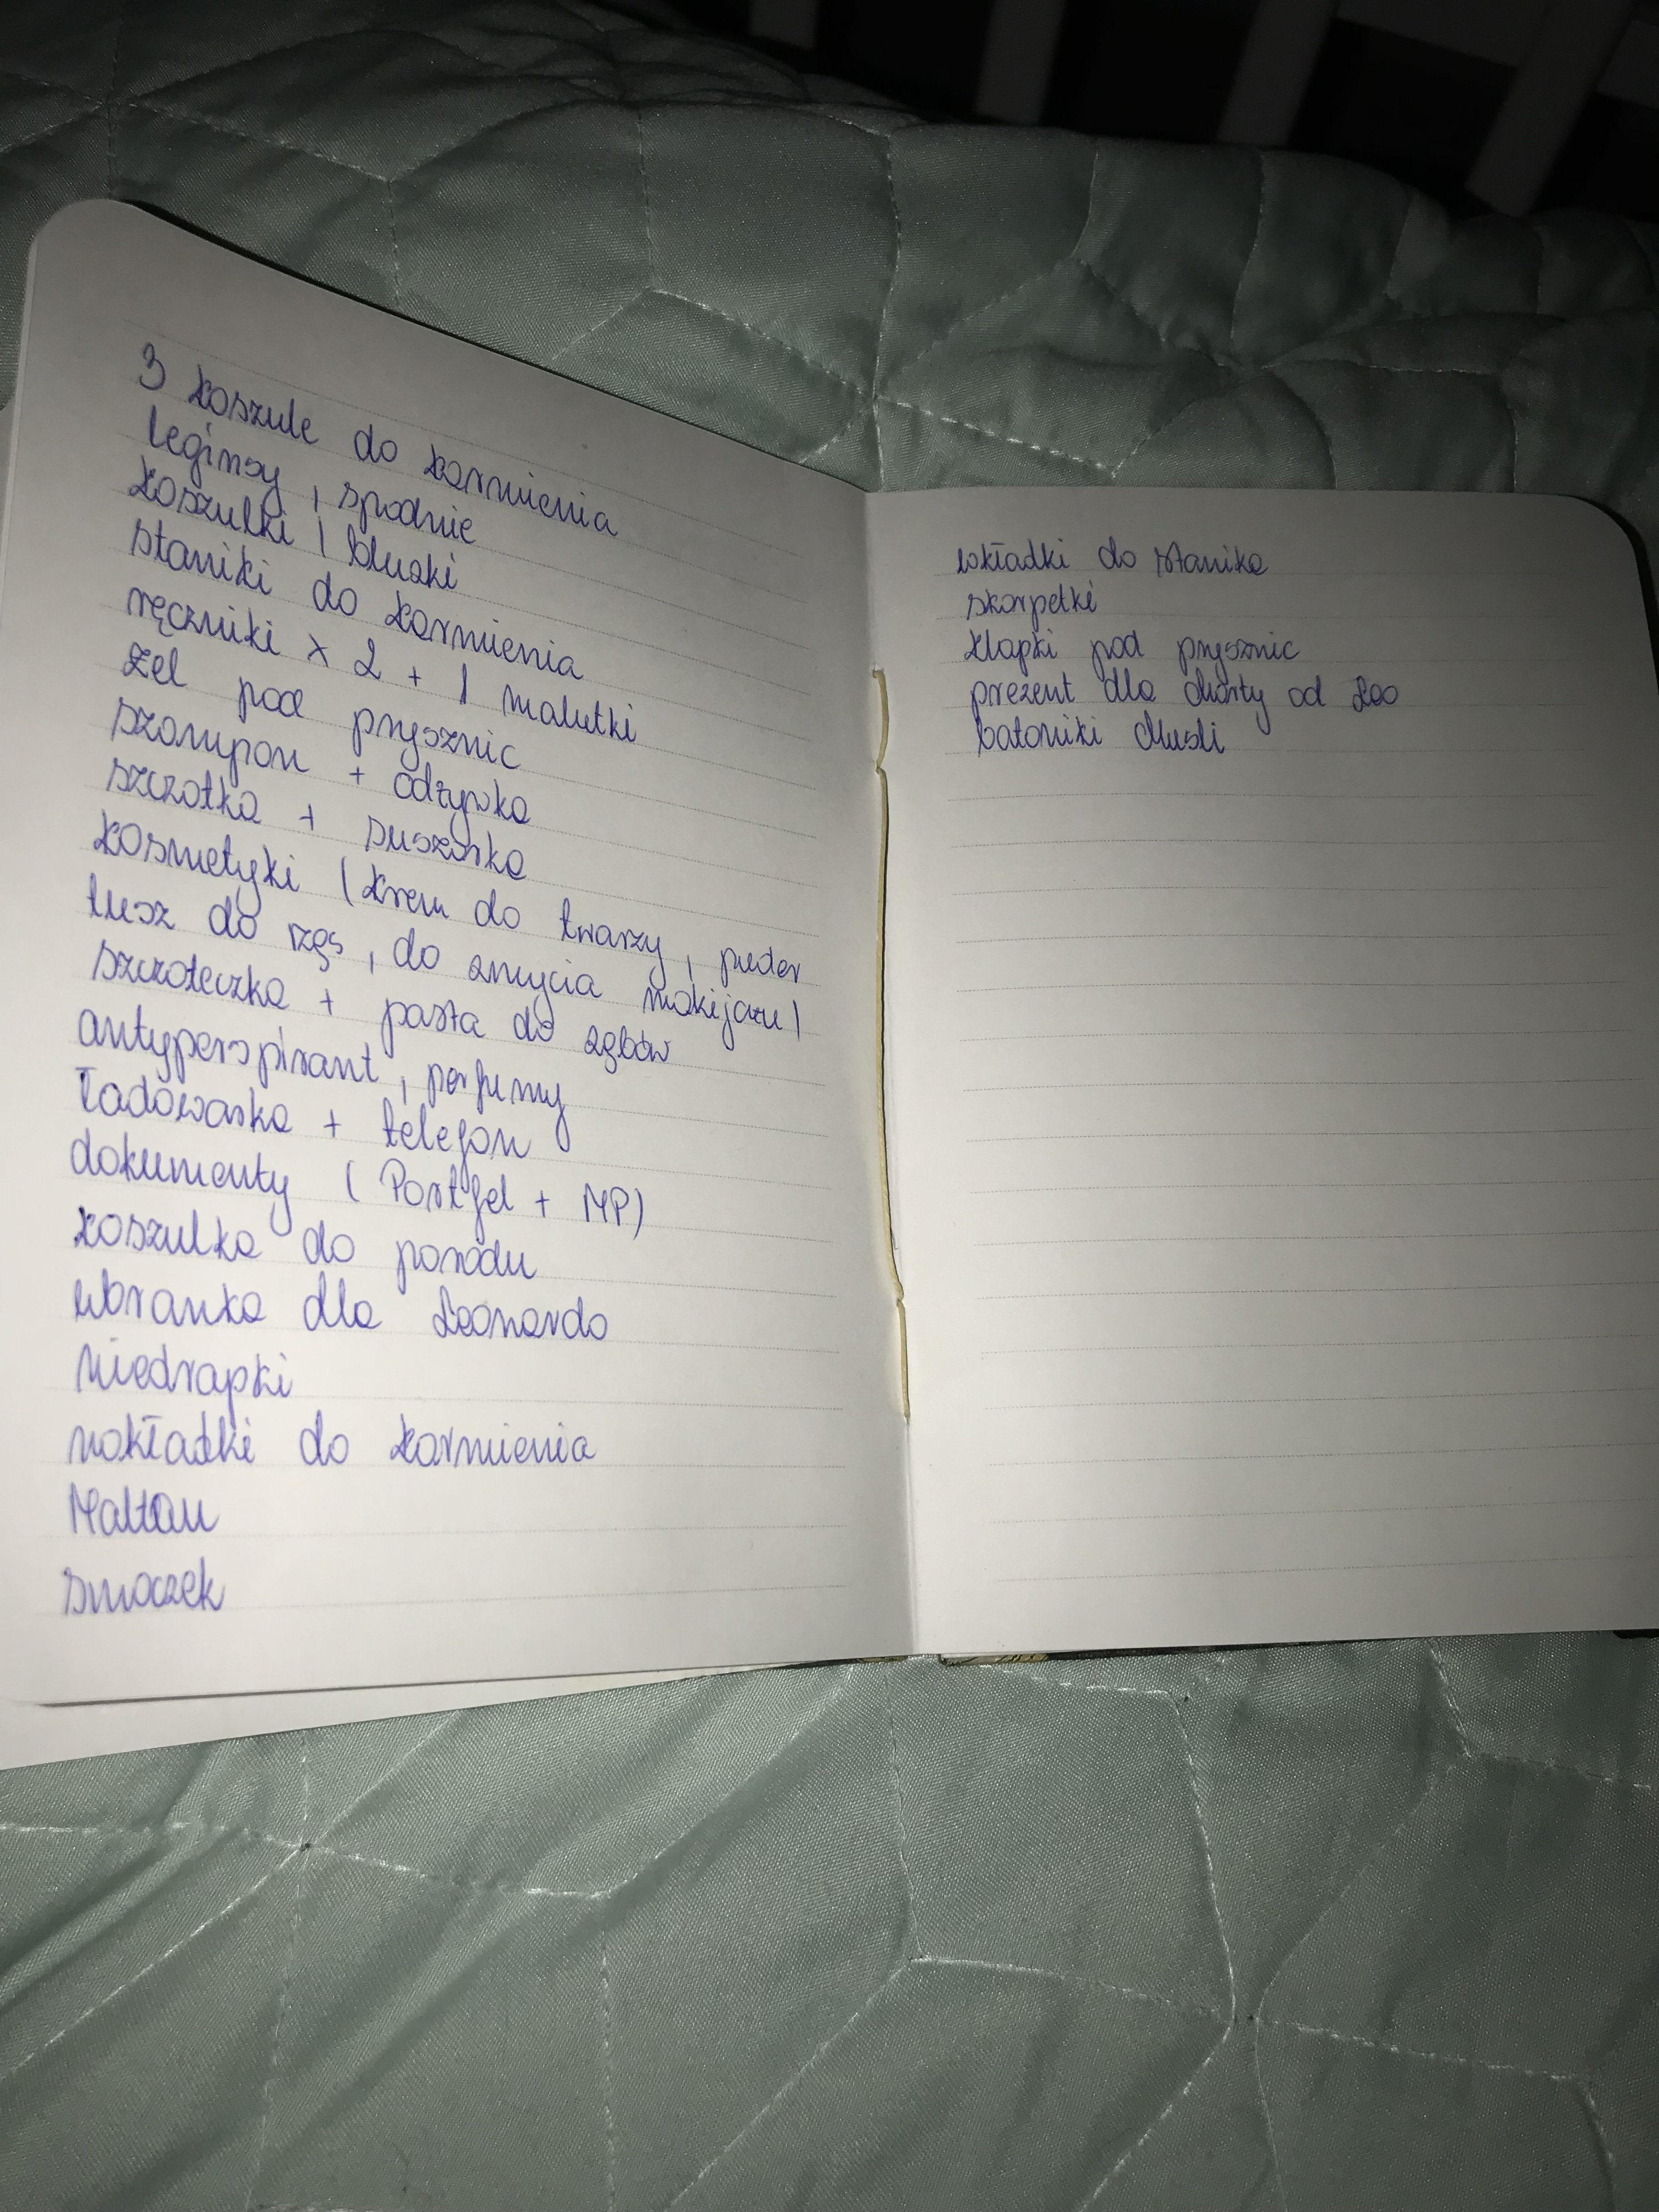 3 koszule do karmienia
leginsy, spodnie
koszulki / bluzki
staniki do karmienia
ręczniki x 2 + 1 malutki
żel pod prysznic
szampon + odżywka
szczotka + suszarka
kosmetyki (krem do twarzy, puder
tusz do rzęs, do zmycia makijażu)
szczoteczka + pasta do zębów
antyperspirant, perfumy
ładowarka + telefon
dokumenty (Portfel + MP)
koszulka do porodu
ubranka dla Leonardo
niedrapki
nakładki do karmienia
Maltan
smoczek
wkładki do stanika
skarpetki
klapki pod prysznic
prezent dla Marty od Leo
batoniki Musli